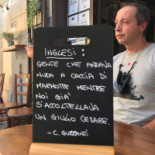 INGLESI :
GENTE CHE ANDAVA
NUDA A CACCIA DI
MARMOTTE MENTRE
NOI GIÀ
S'ACCOLTELLAVA
UN GIULIO CESARE.